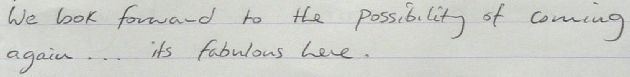 We look forward to the possibility of coming
again... its fabulous here.